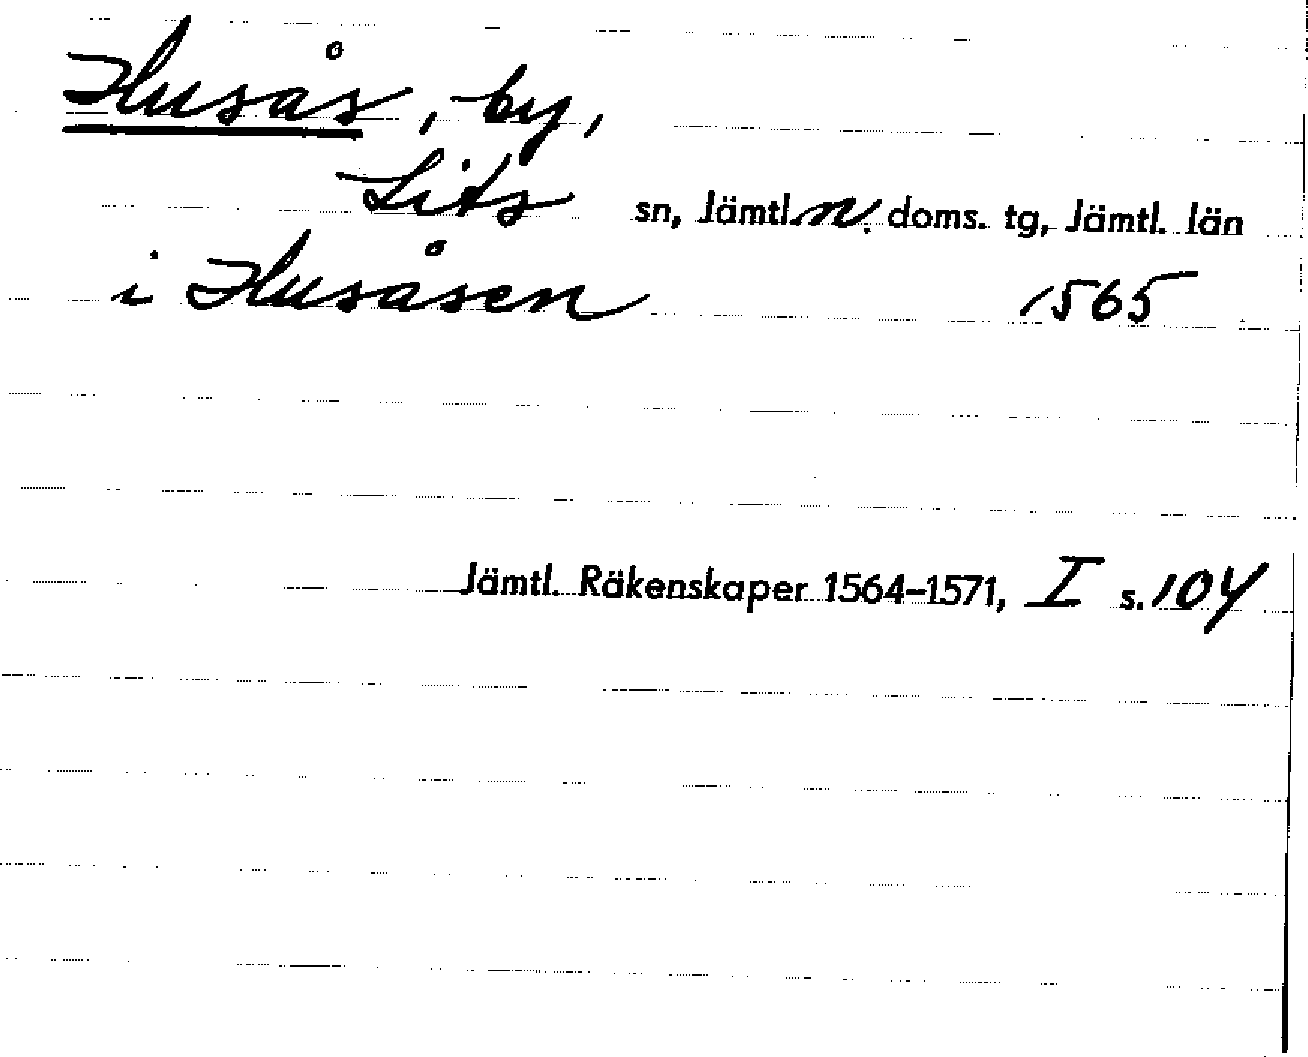 Husås, by,
Lits sn, Jämtl. n. doms. tg, Jämtl. län
i Husåsen 1565
Jämtl. Räkenskaper 1564-1571, I s. 104